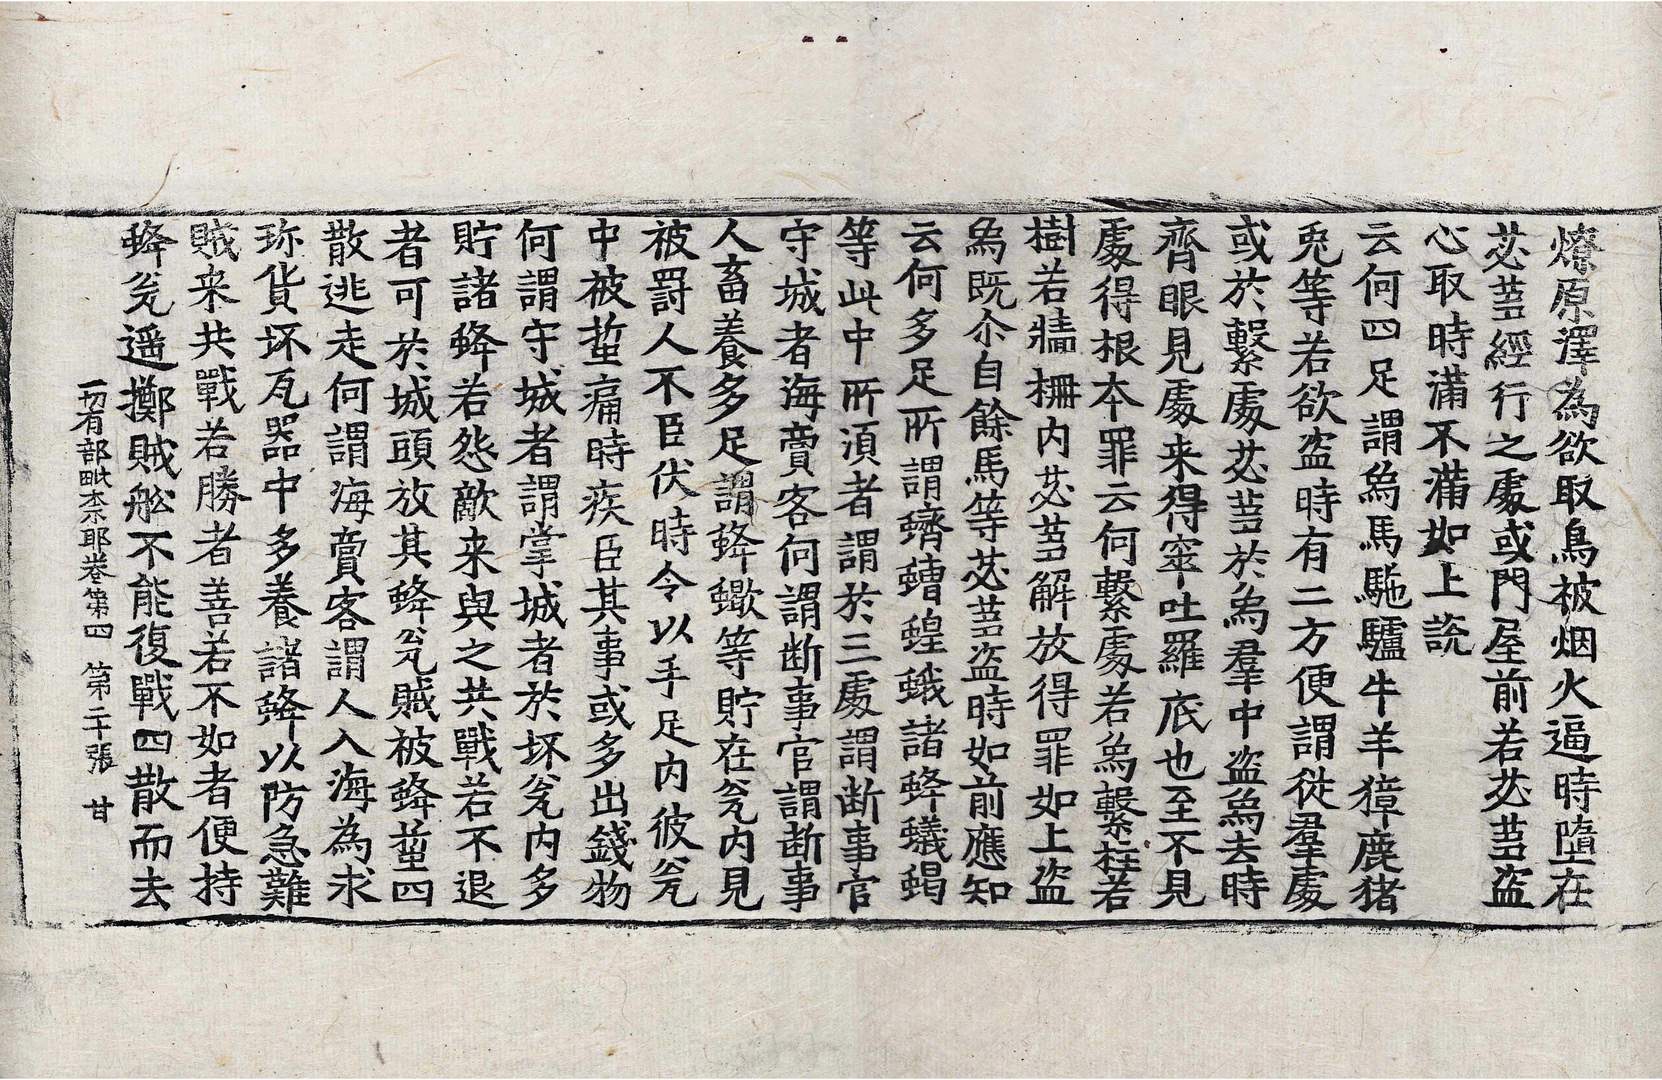 燎原澤為欲取鳥被烟火逼時墮在
苾芻經行之處或門屋前若苾芻盜
心取時滿不滿如上說
云何四足謂象馬駞驢牛羊獐鹿猪
兎等若欲盜時有二方便謂從羣處
或於繫處苾芻於象羣中盜象去時
齊眼見處来得窣吐羅底也至不見
處得根本罪云何繫處若象繫柱若
樹若牆栅内苾芻解放得罪如上盜
象既尒自餘馬等苾芻盜時如前應知
云何多足所謂蠐螬蝗蛾諸蜂蟻蝎
等此中所須者謂於三處謂断事官
守城者海賣客何謂断事官謂断事
人畜養多足謂蜂蠍等貯在瓮内見
被罸人不臣伏時令以手足内彼瓮
中被蜇痛時疾臣其事或多出錢物
何謂守城者謂掌城者於坏瓮内多
貯諸蜂若怨敵来與之共戰若不退
者可於城頭放其蜂瓮賊被蜂蜇四
散逃走何謂海賣客謂人入海為求
珎貨坏瓦器中多養諸蜂以防急難
賊来共戰若勝者善若不如者便持
蜂瓮遥擲賊舩不能復戰四散而去
一切有部毗柰耶卷第四 第二十張 甘